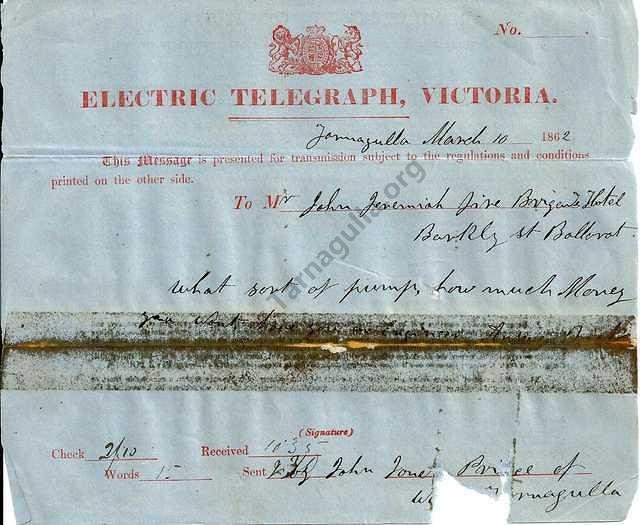 No.
ELECTRIC TELEGRAPH, VICTORIA.
Tarnagulla March 10 1862
This Message is presented for transmission subject to the regulations and conditions
printed on the other side.
To Mr John Jeremiah Fire Brigade Hotel
Barkly st Ballarat
What sort of pump, how much Money
you want have you
(Signature)
Check 2/10 Received 10.35
Words 15 Sent John Jones Prince of
Tarnagulla
Tarnagulla.org